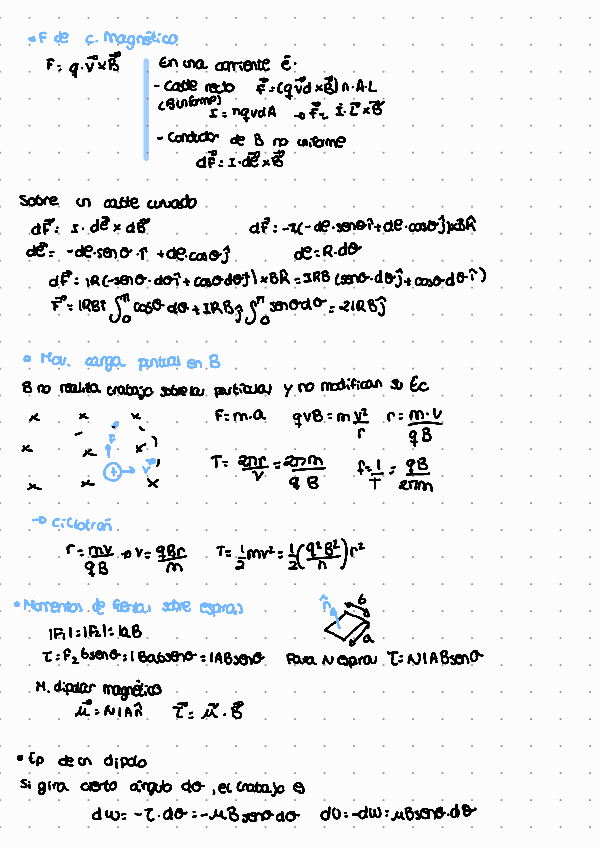 • F de c. Magnético
F = q·v⃗×B⃗
En una corriente é:
- Cable recto F⃗=(qv⃗d×B⃗)n·A·L
(B uniforme) I = nqvdA → F⃗= I·L⃗×B⃗
- Conductor de B no uniforme
dF⃗= I·dℓ⃗×B⃗
Sobre un cable curvado
dF⃗= I·dℓ⃗×dB⃗ dF⃗=-I(-dℓ·senθî+dℓ·cosθĵ)×BR̂
dℓ⃗= -dℓ·senθ·î+dℓ·cosθĵ dℓ=R·dθ
dF⃗= IR(-senθ·dθî+cosθdθĵ)×BR̂=IRB(senθ·dθĵ+cosθ·dθ·î)
F⃗= IRBî∫₀^π cosθ·dθ+IRBĵ∫₀^π senθdθ=2IRBĵ
• Mov. carga puntual en B
B no realiza trabajo sobre las partículas y no modifican su Ec
F=m·a qvB=m v²/r r= m·v/qB
F v⃗
T= 2πr/v = 2πm/qB f= 1/T = qB/2πm
→ Ciclotrón
r= mv/qB → v= qBr/m T= 1/2 mv²= 1/2 (q²B²/m) r²
• Momentos de fuerzas sobre espiras
n̂ b a
|F₁|=|F₂|=IaB
τ=F₂bsenθ=IBabsenθ=IABsenθ Para N espiras τ=NIABsenθ
M. dipolar magnético
μ⃗=NIAn̂ τ⃗=μ⃗·B⃗
• Ep de un dipolo
Si gira cierto ángulo dθ, el trabajo es
dW=-τ·dθ=-μBsenθdθ dU=-dW=μBsenθ·dθ